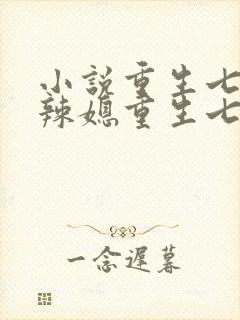 小説重生七
辣媳重生七
一念遲暮